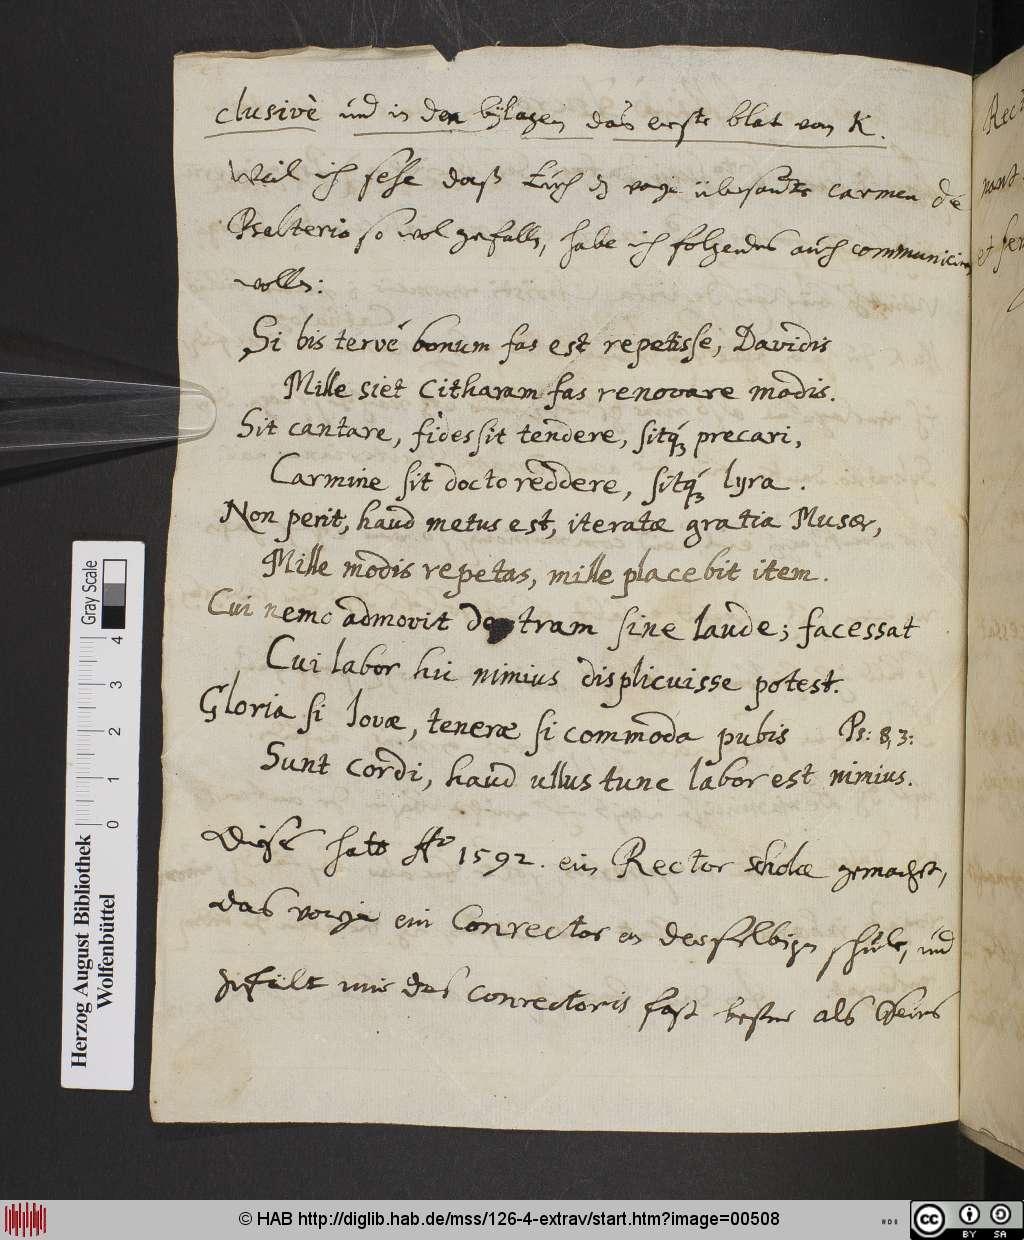 clusivè und in den bÿlagen das erste blat von K.
Weil ich sehe daß Euch dz vorige übersante carmen de
Psalterio so wol gefallen, habe ich folgendes auch communiciren
wollen:
Si bis tervé bonum fas est repetisse, Davidis
Mille siet Citharam fas renovare modis.
Sit cantare, fides sit tendere, sitq́ꝫ precari,
Carmine sit docto reddere, sitq́ꝫ lyra.
Non perit, haud metus est, iteratæ gratia Musæ,
Mille modis repetas, mille placebit item.
Cui nemo admovit dextram sine laude; facessat
Cui labor hic nimius displicuisse potest.
Gloria si Iovæ, teneræ si commoda pubis Ps: 8,3:
Sunt cordi, haud ullus tunc labor est nimius.
Dises hatt Aº 1592. ein Rector scholæ gemacht,
das vorige ein Conrector in desselbigen schule, und
gefelt mir des conrectoris fast besser als
Rec
Herzog August Bibliothek
Wolfenbüttel
Gray Scale
0 1 2 3 4
© HAB http://diglib.hab.de/mss/126-4-extrav/start.htm?image=00508
cc BY SA